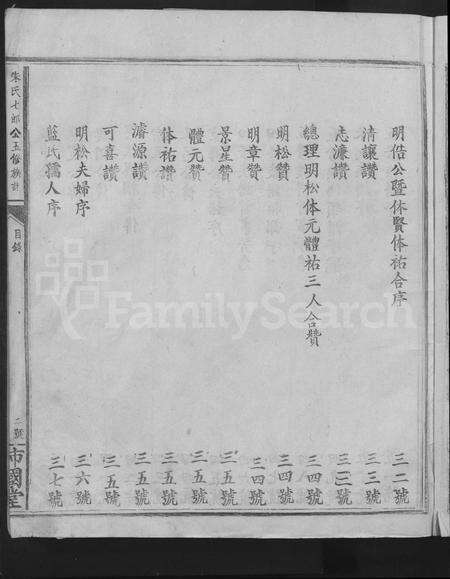 明俈公暨休賢体祐合序 三二號
清讓讚 三三號
志濂讚 三三號
總理明松体元體祐三人合贊 三四號
明松贊 三四號
明章贊 三四號
景星贊 三五號
體元贊 三五號
体祐讚 三五號
濬源讚 三五號
可喜讚 三五號
明松夫婦序 三六號
藍氏孺人序 三七號
朱氏七郎公五修族譜
目錄
二號
沛國堂
FamilySearch